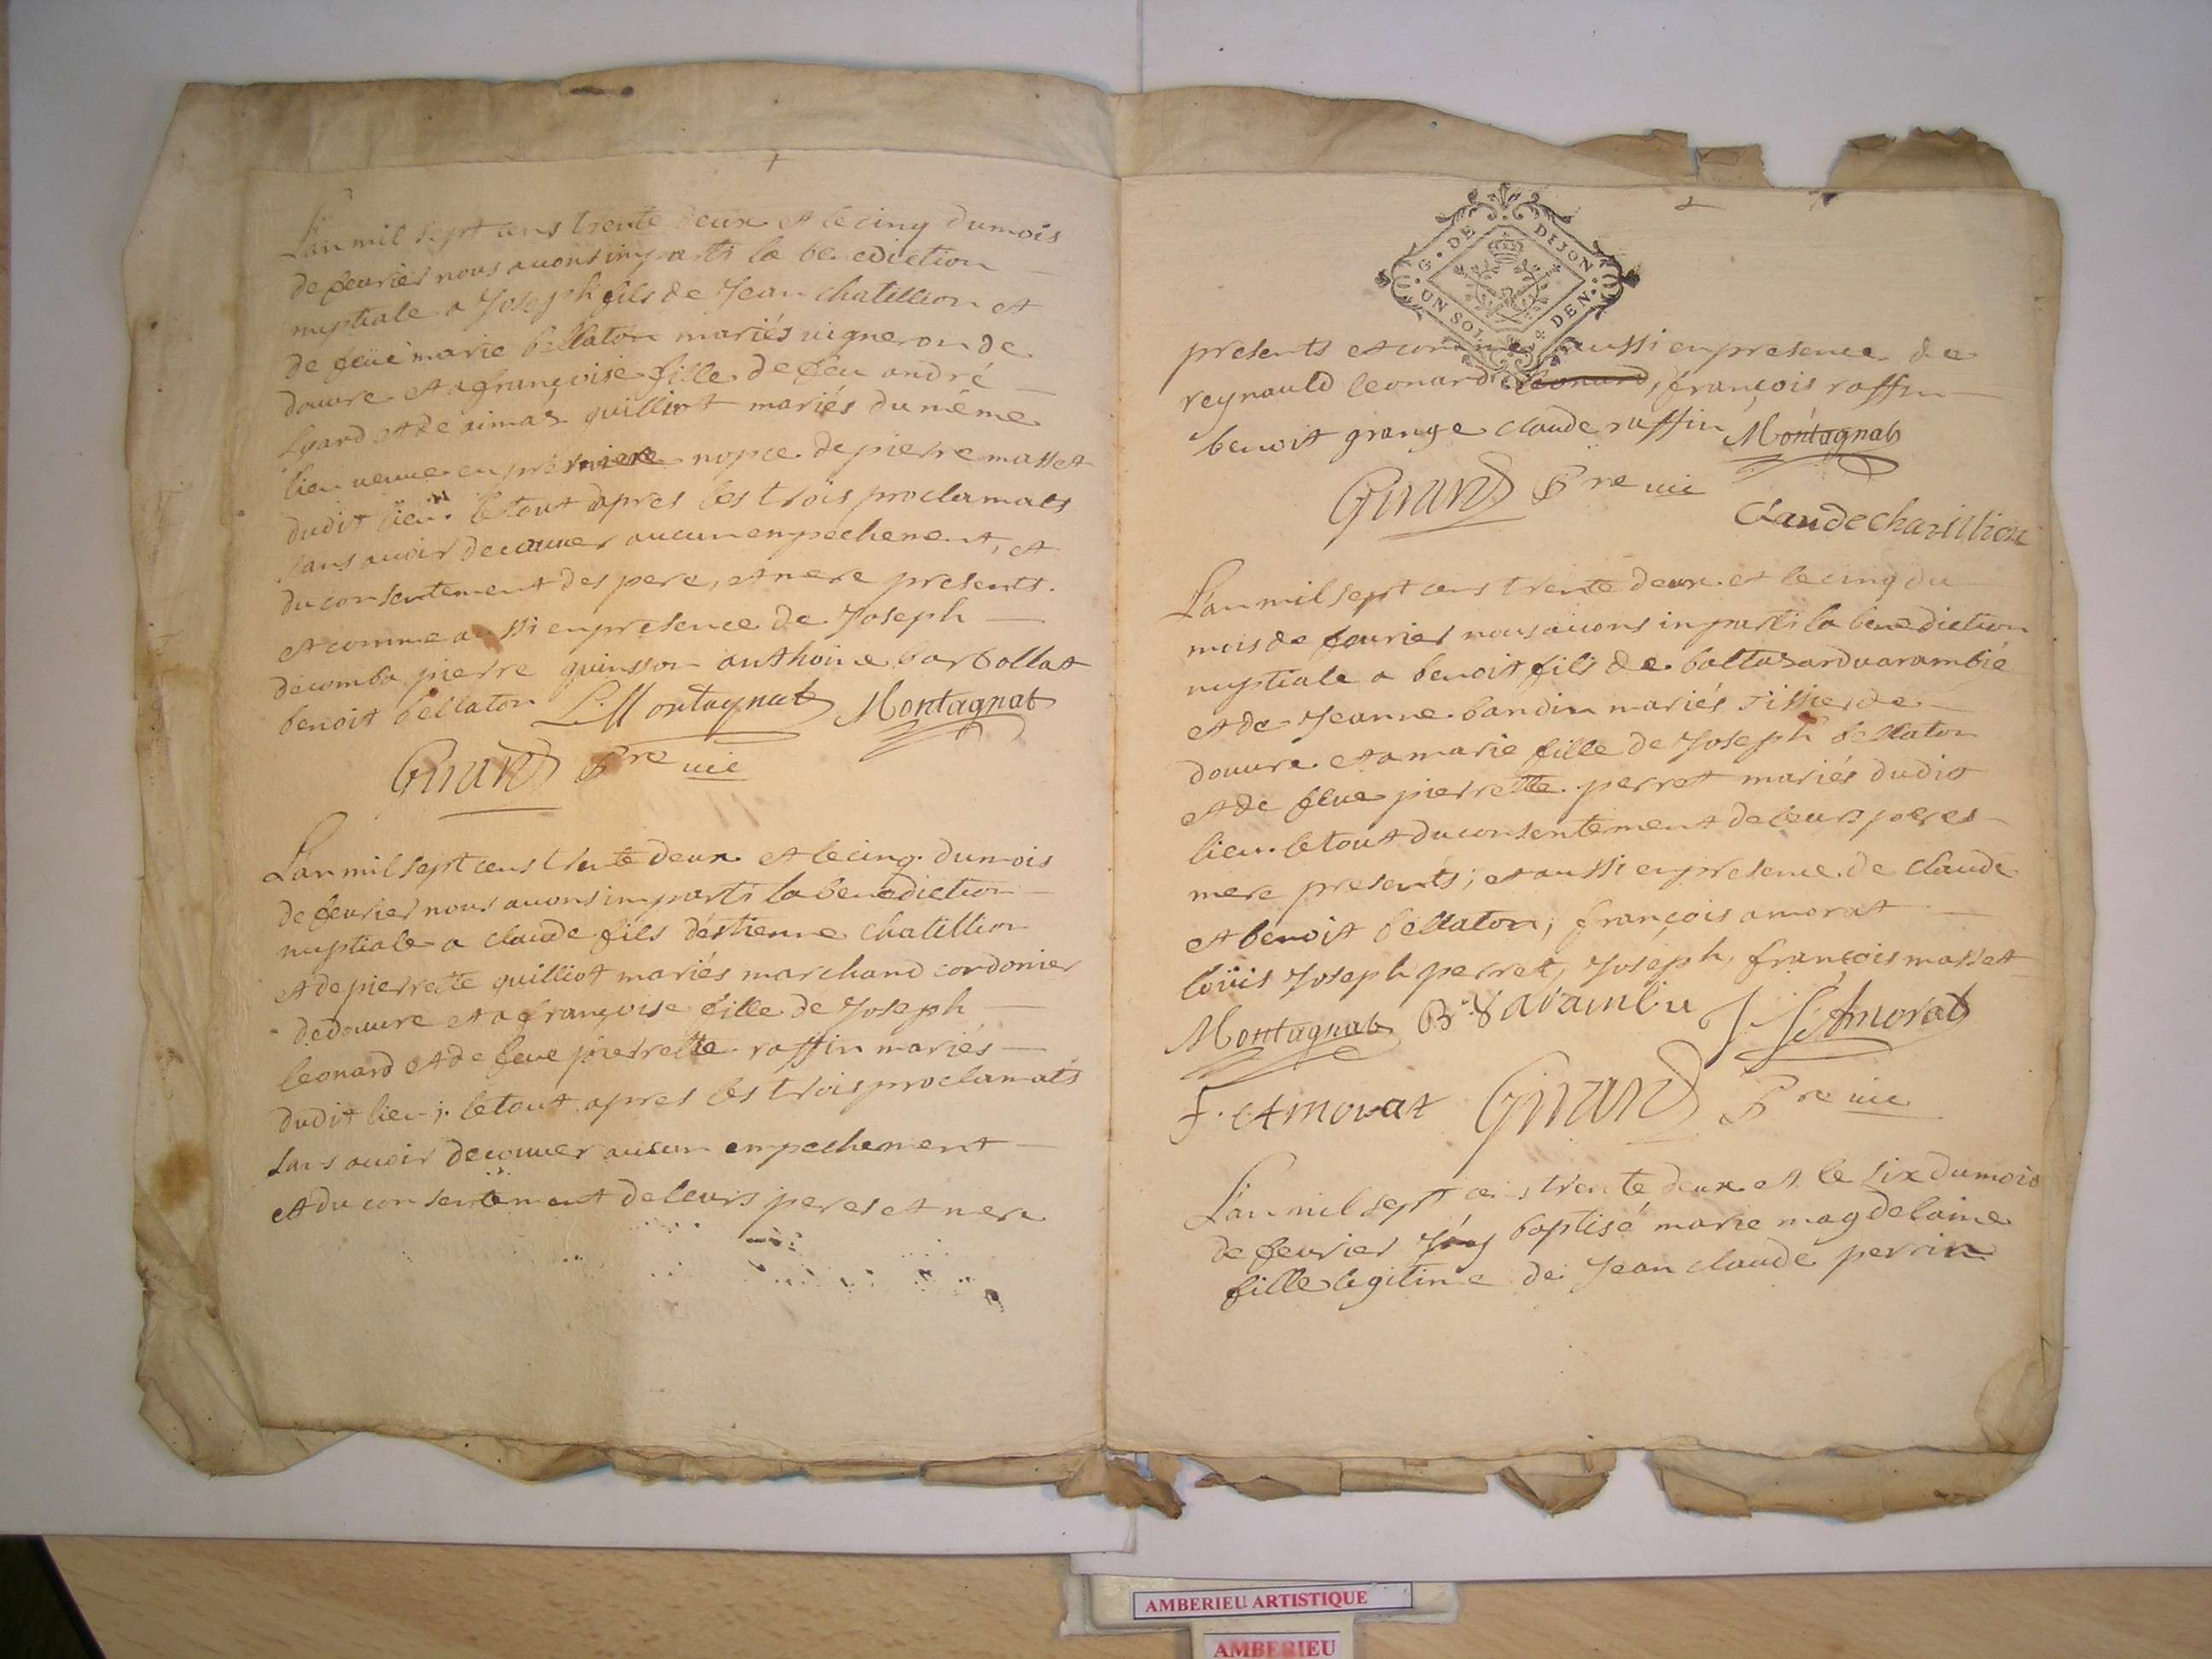 L'an mil sept cens trente deux et le cinq du mois
de feurier nous auons imparti la benediction
nuptiale a Joseph fils de Jean chatillion et
de feüe marie bellaton mariés uigneron de
douure et a françoise fille de feu andré
Lyard et de aimaz quilliot mariés du même
lieu ueuue en premiere nopce de pierre masset
dudit lieu. le tout apres les trois proclamats
sans auoir decouuer aucun empechement, et
du consentement des pere, et mere presents.
et comme aussi en presence de Joseph
decomba pierre guinsson anthoine barbollat
benoit bellaton L. Montagnat Montagnat
Girard Pre uic
L'an mil sept cens trente deux et le cinq du mois
de feurier nous auons imparti la benediction
nuptiale a claude fils d'estienne chatillion
et de pierrette quilliot mariés marchand cordonier
de douure et a françoise fille de Joseph
leonard et de feue pierrette raffin mariés
dudit lieu; le tout apres les trois proclamats
sans auoir decouuer aucun empechement
et du consentement de leurs peres et mere
G. DE DIJON
UN SOL 4 DEN.
presents et comme aussi en presence de
reynauld leonard leonard, françois raffin
benoit grange claude raffin Montagnat
Girard Pre uic
Claude chatillion
L'an mil sept cens trente deux et le cinq du
mois de feurier nous auons imparti la benediction
nuptiale a benoit fils de baltasard uarambié
et de Jeanne bandin mariés tissier de
douure et a marie fille de Joseph bellaton
et de feue pierrette perret mariés dudit
lieu. le tout du consentement de leurs peres
mere presents; et aussi en presence de claude
et benoit bellaton; françois amorat
loüis Joseph perret, Joseph, françois masset
Montagnat B Varambu J Amorat
F. Amorat Girard Pre uic
L'an mil sept cens trente deux et le six du mois
de feurier baptisé marie magdelaine
fille legitime de Jean claude perrin
AMBERIEU ARTISTIQUE
AMBERIEU